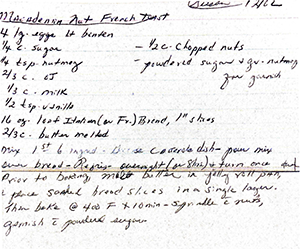 Susan 12/02
Macadamia Nut French Toast
4 lg. eggs lt beaten
1/4 c. sugar - 1/2 c. chopped nuts
1/4 tsp. nutmeg - powdered sugar & gr. nutmeg
2/3 c. OJ for garnish
1/3 c. milk
1/2 tsp. vanilla
16 oz. loaf Italian (or Fr.) Bread, 1" slices
2/3 c. butter melted
Mix 1st 6 ingred. casserole dish - pour mix
over bread - Refrig. overnight (or 8hrs) & turn once
Prior to baking, melt butter in jelly roll pan,
& place soaked bread slices in a single layer.
Then bake @ 400 F x 10 min - sprinkle c nuts,
garnish c powder sugar